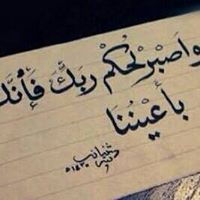 واصْبِرْ لِحُكْمِ رَبِّكَ فَأَنَّكَ
بِأَعْيُنِنَا